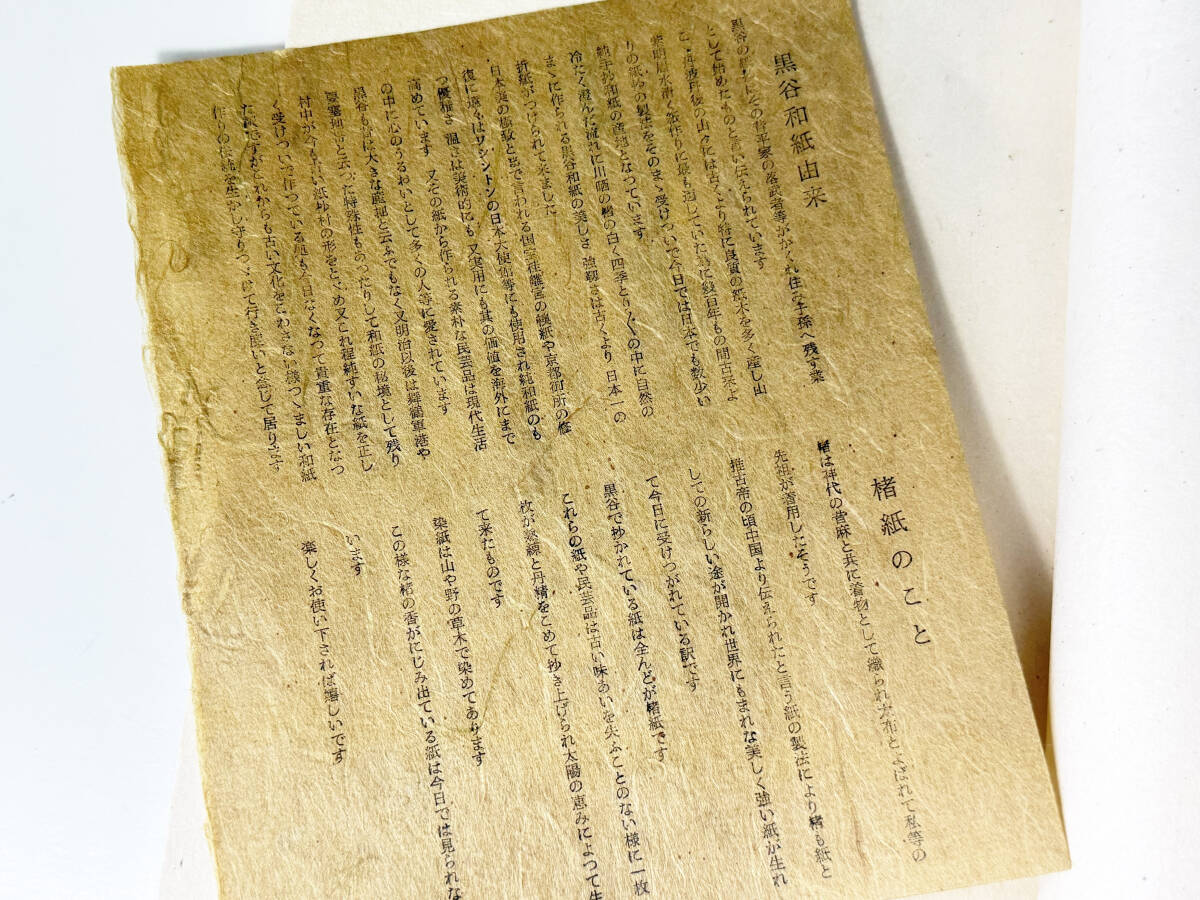 黒谷和紙由来
黒谷の紙は その昔平家の落武者等がかくれ住み子孫へ残す業
として始めたものと言い伝えられています
丹波丹後の山々には古くより特に良質の紙木を多く産し山
紫明水清く紙作りに最も適していた為に幾百年もの間古来よ
りの紙鈔の製法をそのまゝ受けついで今日では日本でも数少い
純手抄和紙の産地となつています
冷たく澄んだ流れに川晒の楮の白く四季とりどりの中に自然の
まゝに作られる黒谷和紙の美しさ 強靱さは古くより 日本一の
折紙がつけられて来ました
日本美の極致と迄で言われる国宝桂離宮の襖紙や京都御所の修
復に 遠くはワシントンの日本大使館等にも使用され純和紙のも
つ優雅さ 温さは美術的にも 又実用にも其の価値を海外にまで
高めています 又その紙から作られる素朴な民芸品は現代生活
の中に心のうるおいとして多くの人等に愛されています
黒谷も昔は大きな産地と云ふでもなく又明治以後は舞鶴軍港や
要塞地帯と云つた特殊性もあつたりして和紙の秘境として残り
村中が今も古い紙抄村の形をとゞめ又これ程純ずいな紙を正し
く受けついで作つている処も今日なくなつて貴重な存在となつ
た様ですがこれからも古い文化をこわさない様つゝましい和紙
作りの伝統を生かし守りつゞけて行き度いと念じて居ります
楮紙のこと
楮は神代の昔麻と共に着物として織られ太布とよばれて私等の
先祖が着用したそうです
推古帝の頃中国より伝えられたと言う紙の製法により楮も紙と
しての新らしい途が開かれ世界にもまれな美しく強い紙が生れ
て今日に受けつがれている訳です
黒谷で抄かれている紙は全んどが楮紙です
これらの紙や民芸品は古い味あいを失ふことのない様に一枚
枚が熟練と丹精をこめて抄き上げられ太陽の恵みによつて生
て来たものです
染紙は山や野の草木で染めてあります
この様な楮の香がにじみ出ている紙は今日では見られな
います
楽しくお使い下されば嬉しいです